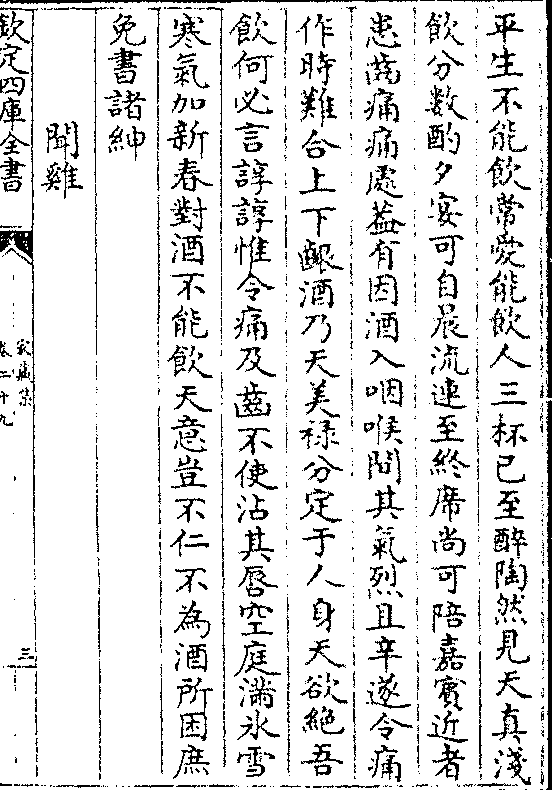 平生不能飲常愛能飲人三杯已至醉陶然見天真淺
飲分数酌夕宴可自晨流連至終席尚可陪嘉賓近者
患齒痛痛處蓋有因酒入咽喉間其氣烈且辛遂令痛
作時難合上下齦酒乃天美禄分定于人身天欲絶吾
飲何必言諄諄惟令痛及齒不使沾其唇空庭滿氷雪
寒氣加新春對酒不能飲天意豈不仁不為酒所困庶
免書諸紳
聞雞
欽定四庫全書
家藏集
卷二十九
三